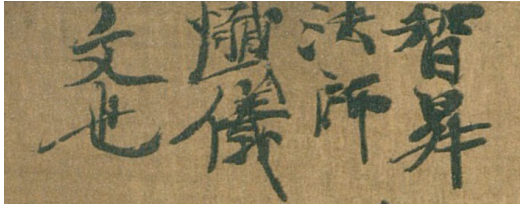 智昇
法師
懺儀
文也